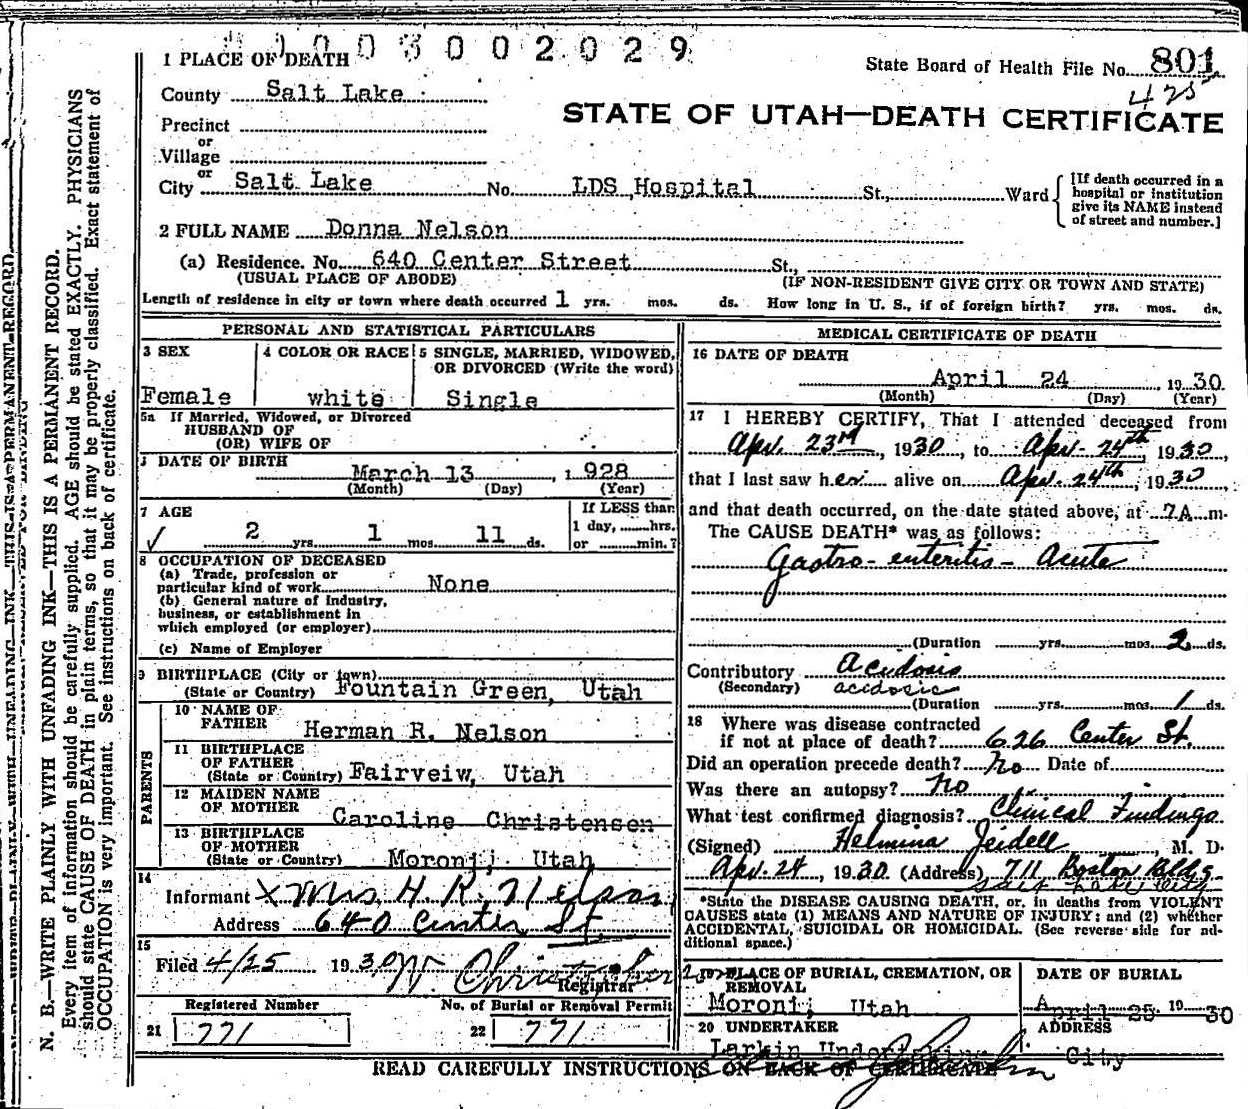 0 0 3 0 0 2 0 2 9
1 PLACE OF DEATH
State Board of Health File No. 801
425
County Salt Lake
STATE OF UTAH—DEATH CERTIFICATE
Precinct
or
Village
or
City Salt Lake No. LDS Hospital St., Ward
[If death occurred in a hospital or institution give its NAME instead of street and number.]
2 FULL NAME Donna Nelson
(a) Residence. No. 640 Center Street St.,
(USUAL PLACE OF ABODE) (IF NON-RESIDENT GIVE CITY OR TOWN AND STATE)
Length of residence in city or town where death occurred 1 yrs. mos. ds. How long in U. S., if of foreign birth? yrs. mos. ds.
PERSONAL AND STATISTICAL PARTICULARS
3 SEX
Female
4 COLOR OR RACE
white
5 SINGLE, MARRIED, WIDOWED,
OR DIVORCED (Write the word)
Single
5a If Married, Widowed, or Divorced
HUSBAND OF
(OR) WIFE OF
DATE OF BIRTH
March 13, 1928
(Month) (Day) (Year)
7 AGE
2 yrs. 1 mos. 11 ds.
If LESS than
1 day, hrs.
or min.?
8 OCCUPATION OF DECEASED
(a) Trade, profession or
particular kind of work None
(b) General nature of Industry,
business, or establishment in
which employed (or employer)
(c) Name of Employer
9 BIRTHPLACE (City or town)
(State or Country) Fountain Green, Utah
PARENTS
10 NAME OF
FATHER Herman R. Nelson
11 BIRTHPLACE
OF FATHER
(State or Country) Fairveiw, Utah
12 MAIDEN NAME
OF MOTHER Caroline Christensen
13 BIRTHPLACE
OF MOTHER
(State or Country) Moroni, Utah
14
Informant X Mrs. H. R. Nelson
Address 640 Center St.
15
Filed 4/25 1930 W. Christopher
Registrar
Registered Number
21 771
No. of Burial or Removal Permit
22 771
MEDICAL CERTIFICATE OF DEATH
16 DATE OF DEATH
April 24, 1930
(Month) (Day) (Year)
17 I HEREBY CERTIFY, That I attended deceased from
Apr. 23rd, 1930, to Apr. 24th, 1930,
that I last saw her alive on Apr. 24th, 1930
and that death occurred, on the date stated above, at 7A m.
The CAUSE DEATH* was as follows:
Gastro-enteritis - Acute
(Duration yrs. mos. 2 ds.
Contributory Acidosis
(Secondary) acidosis
(Duration yrs. mos. 1 ds.
18 Where was disease contracted
if not at place of death? 626 Center St.
Did an operation precede death? No Date of
Was there an autopsy? No
What test confirmed diagnosis? Clinical Findings
(Signed) Helmina Jeidell, M. D.
Apr. 24, 1930 (Address) 711 Boston Bldg.
Salt Lake City
*State the DISEASE CAUSING DEATH, or, in deaths from VIOLENT
CAUSES state (1) MEANS AND NATURE OF INJURY; and (2) whether
ACCIDENTAL, SUICIDAL OR HOMICIDAL. (See reverse side for ad-
ditional space.)
19 PLACE OF BURIAL, CREMATION, OR
REMOVAL
Moroni, Utah
DATE OF BURIAL
April 25 1930
20 UNDERTAKER
Larkin Undertaking
ADDRESS
City
READ CAREFULLY INSTRUCTIONS ON BACK OF CERTIFICATE
N. B.—WRITE PLAINLY WITH UNFADING INK—THIS IS A PERMANENT RECORD.
Every item of information should be carefully supplied. AGE should be stated EXACTLY. PHYSICIANS
should state CAUSE OF DEATH in plain terms, so that it may be properly classified. Exact statement of
OCCUPATION is very important. See instructions on back of certificate.